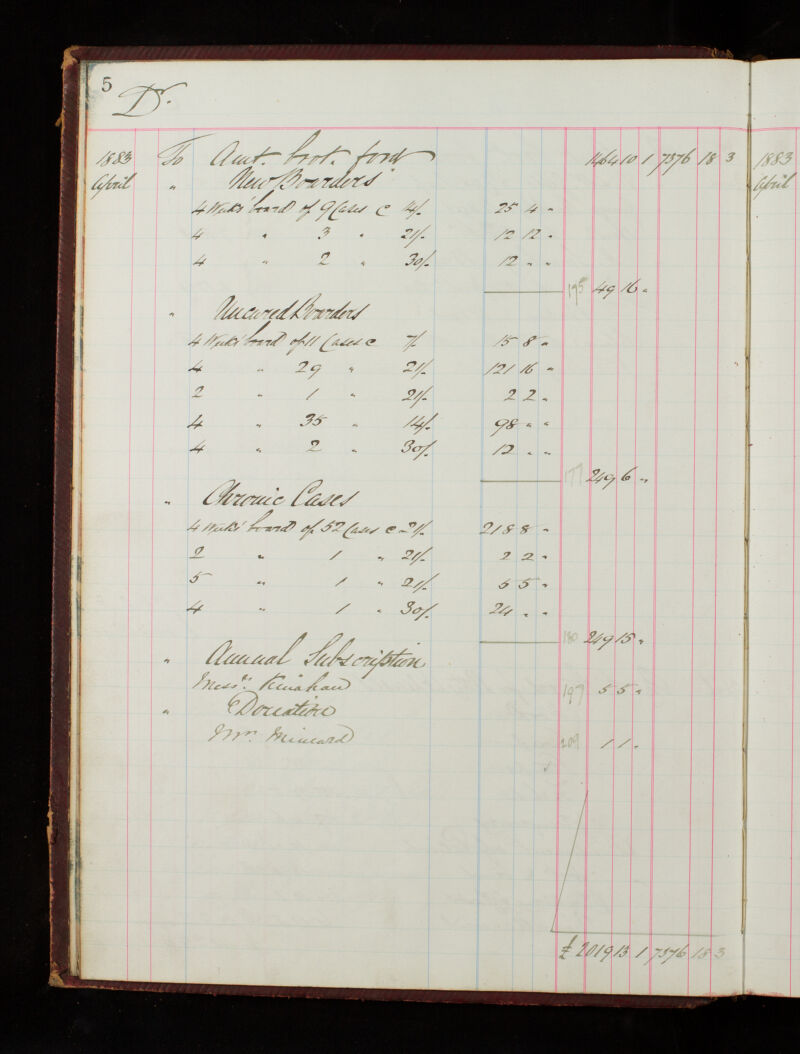 5
Dr.
1883 To Amt. brot. ford 1464 10 1 7376 18 3 1883
April " New Boarders April
4 Weeks' board of 9 Cases @ 14/. 25 4 "
4 " 3 " 21/. 12 12 "
4 " 2 " 30/. 12 " "
195 49 16 "
" Uncured Boarders
4 Weeks' board of 11 Cases @ 7/. 15 8 "
4 " 29 " 21/. 121 16 "
2 " 1 " 21/. 2 2 "
4 " 35 " 14/. 98 " "
4 " 2 " 30/. 12 " "
177 249 6 "
" Chronic Cases
4 Weeks' board of 52 Cases @ 21/. 218 8 "
2 " 1 " 21/. 2 2 "
5 " 1 " 21/. 5 5 "
4 " 1 " 30/. 24 " "
180 249 15 "
" Annual Subscription
Messrs. Kinahan 197 5 5 "
" Donation
Mr. 209 1 1 "
£ 2019 13 1 7376 18 3